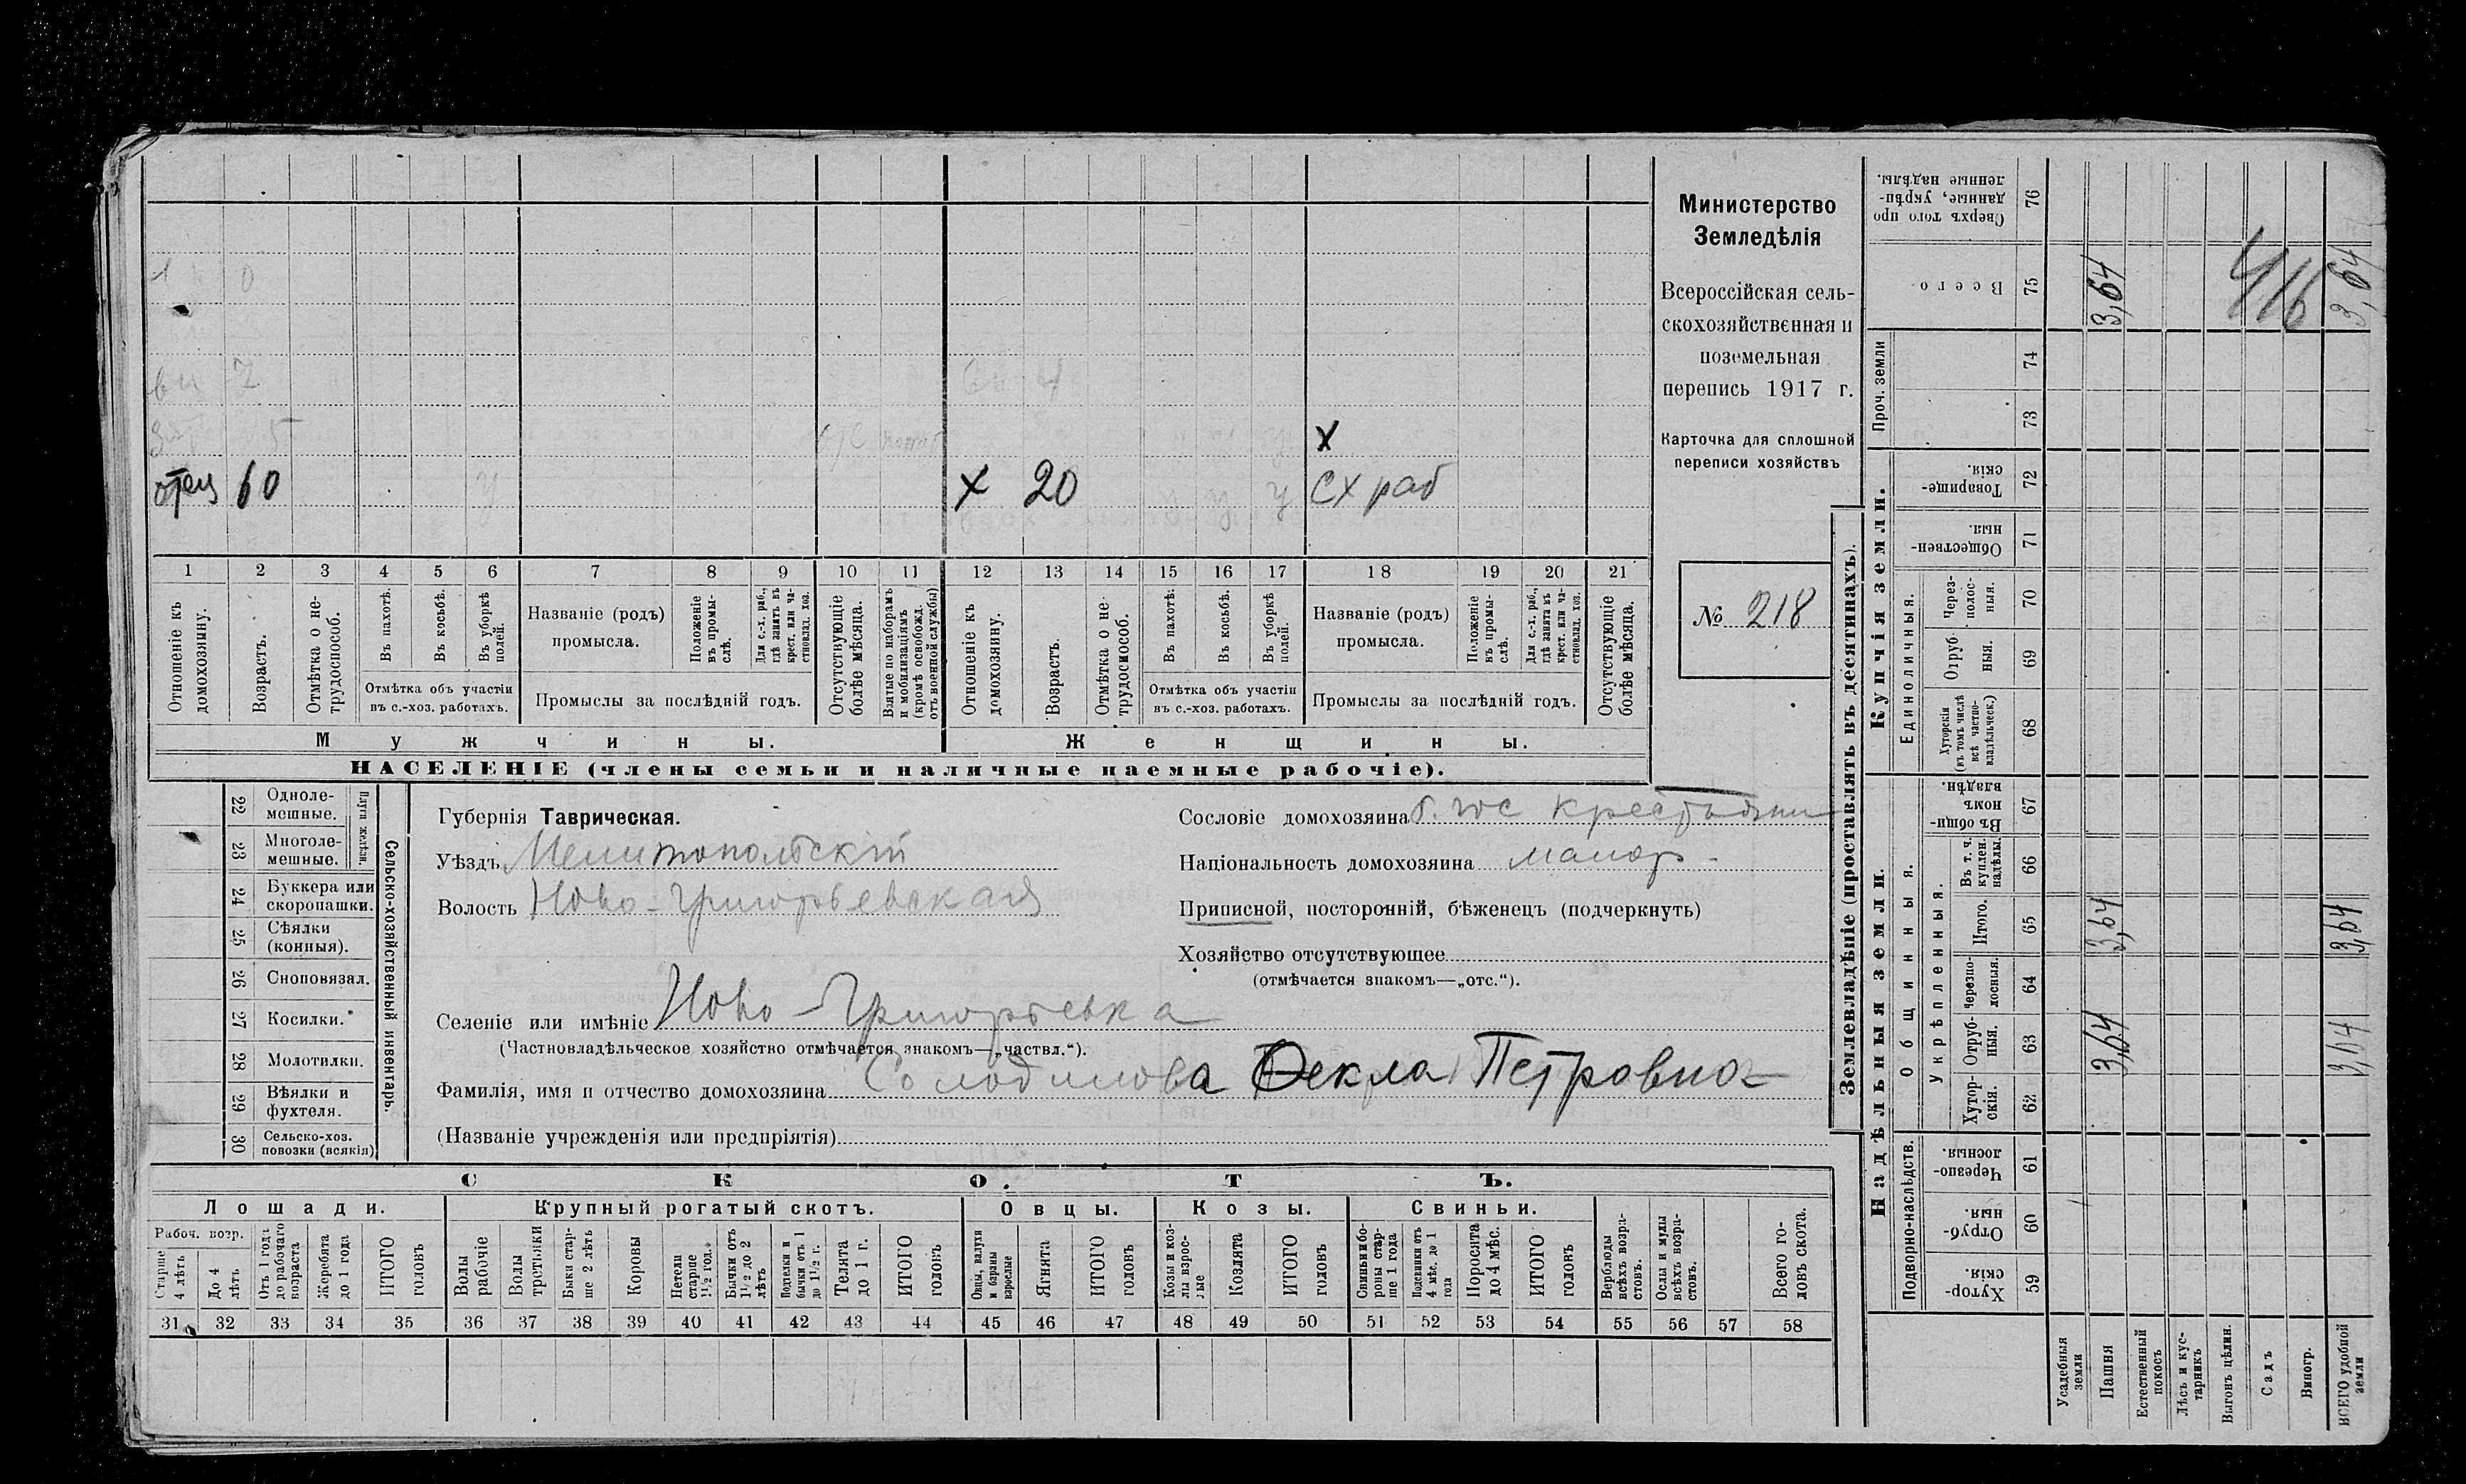 отец 60 Х 20 Сх раб
Х
1 2 3 4 5 6 7 8 9 10 11 12 13 14 15 16 17 18 19 20 21
Отношеніе къ домохозяину.
Возрастъ.
Отмѣтка о нетрудоспособ.
Въ пахотѣ.
Въ косьбѣ.
Въ уборкѣ полей.
Отмѣтка объ участіи
въ с.-хоз. работахъ.
Названіе (родъ)
промысла.
Положеніе въ промыслѣ.
Для с.-х. раб., гдѣ занятъ въ крест. или частновлад. хоз.
Промыслы за послѣдній годъ.
Отсутствующіе болѣе мѣсяца.
Взятые по наборамъ и мобилизаціямъ (кромѣ освобожд. отъ военной службы)
Отношеніе къ домохозяину.
Возрастъ.
Отмѣтка о нетрудоспособ.
Въ пахотѣ.
Въ косьбѣ.
Въ уборкѣ полей.
Отмѣтка объ участіи
въ с.-хоз. работахъ.
Названіе (родъ)
промысла.
Положеніе въ промыслѣ.
Для с.-х. раб., гдѣ занятъ въ крест. или частновлад. хоз.
Промыслы за послѣдній годъ.
Отсутствующіе болѣе мѣсяца.
Мужчины.
Женщины.
НАСЕЛЕНІЕ (члены семьи и наличные наемные рабочіе).
Министерство
Земледѣлія
Всероссійская сель-
скохозяйственная и
поземельная
перепись 1917 г.
Карточка для сплошной
переписи хозяйствъ
№ 218
22 Одноле-
мешные.
23 Многоле-
мешные.
Плуги желѣзн.
24 Буккера или
скоропашки.
25 Сѣялки
(конныя).
26 Сноповязал.
27 Косилки.
28 Молотилки.
29 Вѣялки и
фухтеля.
30 Сельско-хоз.
повозки (всякія)
Сельско-хозяйственный инвентарь.
Губернія Таврическая.
Уѣздъ Мелитопольскій
Волость Ново-Григорьевская
Селеніе или имѣніе Ново-Григорьевка
(Частновладѣльческое хозяйство отмѣчается знакомъ—„частвл.“).
Фамилія, имя и отчество домохозяина Солодилова Фекла Петровна
(Названіе учрежденія или предпріятія)
Сословіе домохозяина б. гос крестьянин
Національность домохозяина малор.
Приписной, посторонній, бѣженецъ (подчеркнуть)
Хозяйство отсутствующее
(отмѣчается знакомъ—„отс.“).
СКОТЪ.
Лошади.
Крупный рогатый скотъ.
Овцы.
Козы.
Свиньи.
Рабоч. возр.
Старше 4 лѣтъ
До 4 лѣтъ
Отъ 1 года до рабочаго возраста
Жеребята до 1 года
ИТОГО головъ
Волы рабочіе
Волы третьяки
Быки старше 2 лѣтъ
Коровы
Нетели старше 1½ год.
Бычки отъ 1½ до 2 лѣтъ
Подтелки и бычки отъ 1 до 1½ г.
Телята до 1 г.
ИТОГО головъ
Овцы, валухи и бараны взрослые
Ягнята
ИТОГО головъ
Козы и козлы взрослые
Козлята
ИТОГО головъ
Свиньи и боровы старше 1 года
Подсвинки отъ 4 мѣс. до 1 года
Поросята до 4 мѣс.
ИТОГО головъ
Верблюды всѣхъ возрастовъ.
Ослы и мулы всѣхъ возрастовъ.
Всего головъ скота.
31 32 33 34 35 36 37 38 39 40 41 42 43 44 45 46 47 48 49 50 51 52 53 54 55 56 57 58
Землевладѣніе (проставлять въ десятинахъ).
Надѣльныя земли.
Купчія земли.
Проч. земли
Подворно-наслѣдств.
Общинныя.
Укрѣпленныя.
Единоличныя.
Хуторскія. 59
Отрубныя. 60
Черезполосныя. 61
Хуторскія. 62
Отрубныя. 63 3,64 3,64
Черезполосныя. 64
Итого. 65 3,64 3,64
Въ т. ч. куплен. надѣлы. 66
Въ общинномъ владѣн. 67
Хуторскія (въ томъ числѣ всѣ частновладѣльческ.) 68
Отрубныя. 69
Черезполосныя. 70
Общественныя. 71
Товарищескія. 72
73
74
Всего 75 3,64 416 3,64
Сверхъ того проданные, укрѣпленные надѣлы. 76
Усадебныя земли
Пашня
Естественный покосъ
Лѣсъ и кустарникъ
Выгонъ цѣлин.
Садъ
Виногр.
ВСЕГО удобной земли